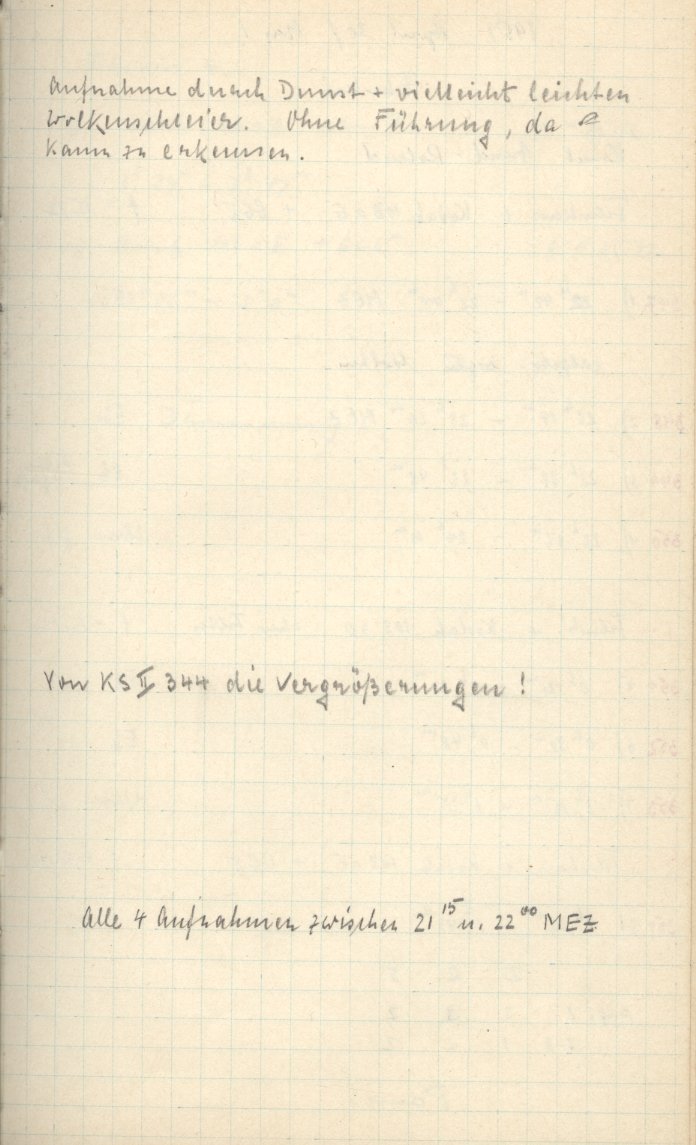 Aufnahme durch Dunst + vielleicht leichten
Wolkenschleier. Ohne Führung, da
kaum zu erkennen.
Von KS II 344 die Vergrößerungen!
Alle 4 Aufnahmen zwischen 21 15 u. 22 00 MEZ